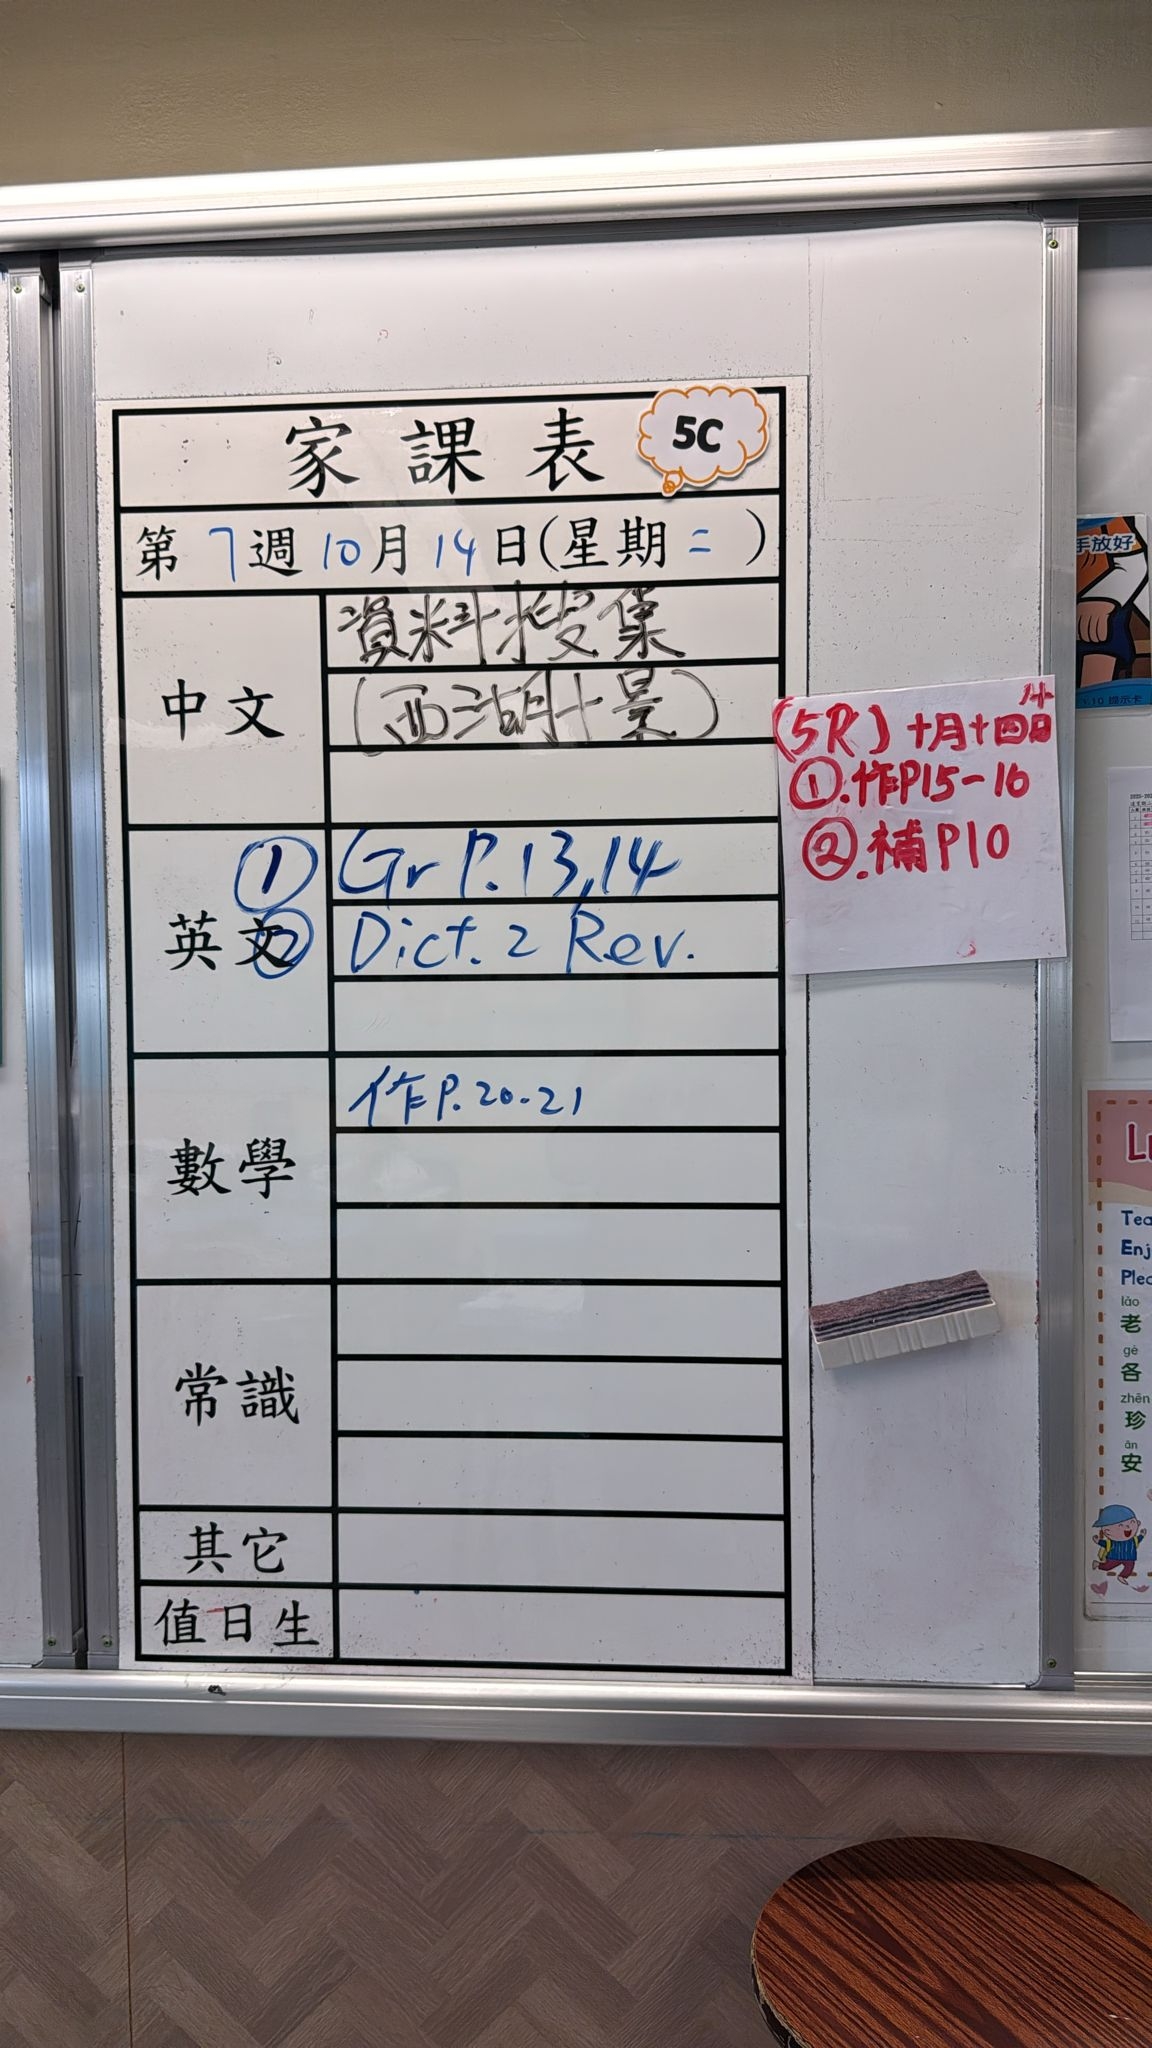 家課表
5C
第7週10月14日(星期二)
中文
資料搜集
(西湖十景)
英文
① Gr P.13,14
② Dict. 2 Rev.
數學
作P.20-21
常識
其它
值日生
(5R) 十月十四日
①.作P15-16
②.補P10
手放好
提示卡
Tea
Enj
Plea
lǎo
老
gè
各
zhēn
珍
ān
安